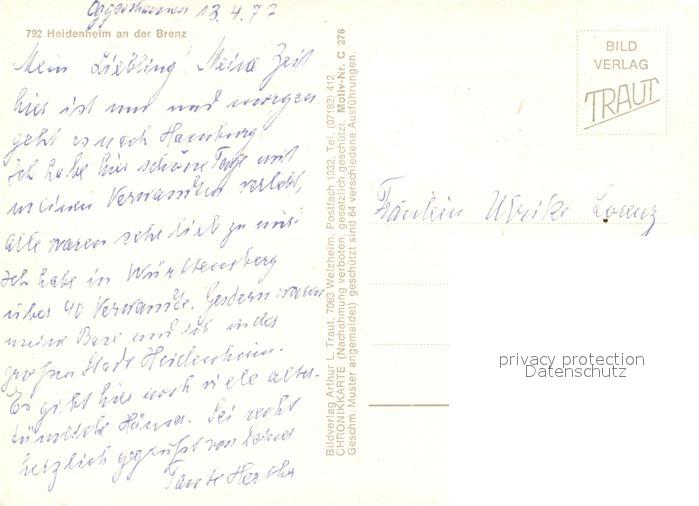 Oggenhausen 13.4.72
792 Heidenheim an der Brenz
Mein Liebling! Meine Zeit
hier ist um und morgen
geht es nach Hamburg
Ich habe hier schöne Tage mit
meinen Verwandten verlebt,
alle waren sehr lieb zu mir.
Ich habe in Württemberg
über 40 Verwandte. Gestern waren
meine Base und ich in der
großen Stadt Heidenheim.
Es gibt hier noch viele alter-
tümliche Häuser. Sei recht
herzlich gegrüßt von Deiner
Tante Hertha
Bildverlag Arthur L. Traut, 7063 Welzheim, Postfach 1332, Tel. (07182) 412
CHRONIKKARTE (Nachahmung verboten, gesetzlich geschützt. Motiv-Nr. C 276
Geschm. Muster angemeldet) geschützt sind 64 verschiedene Ausführungen.
BILD
VERLAG
TRAUT
Fräulein Ulrike Lorenz
privacy protection
Datenschutz